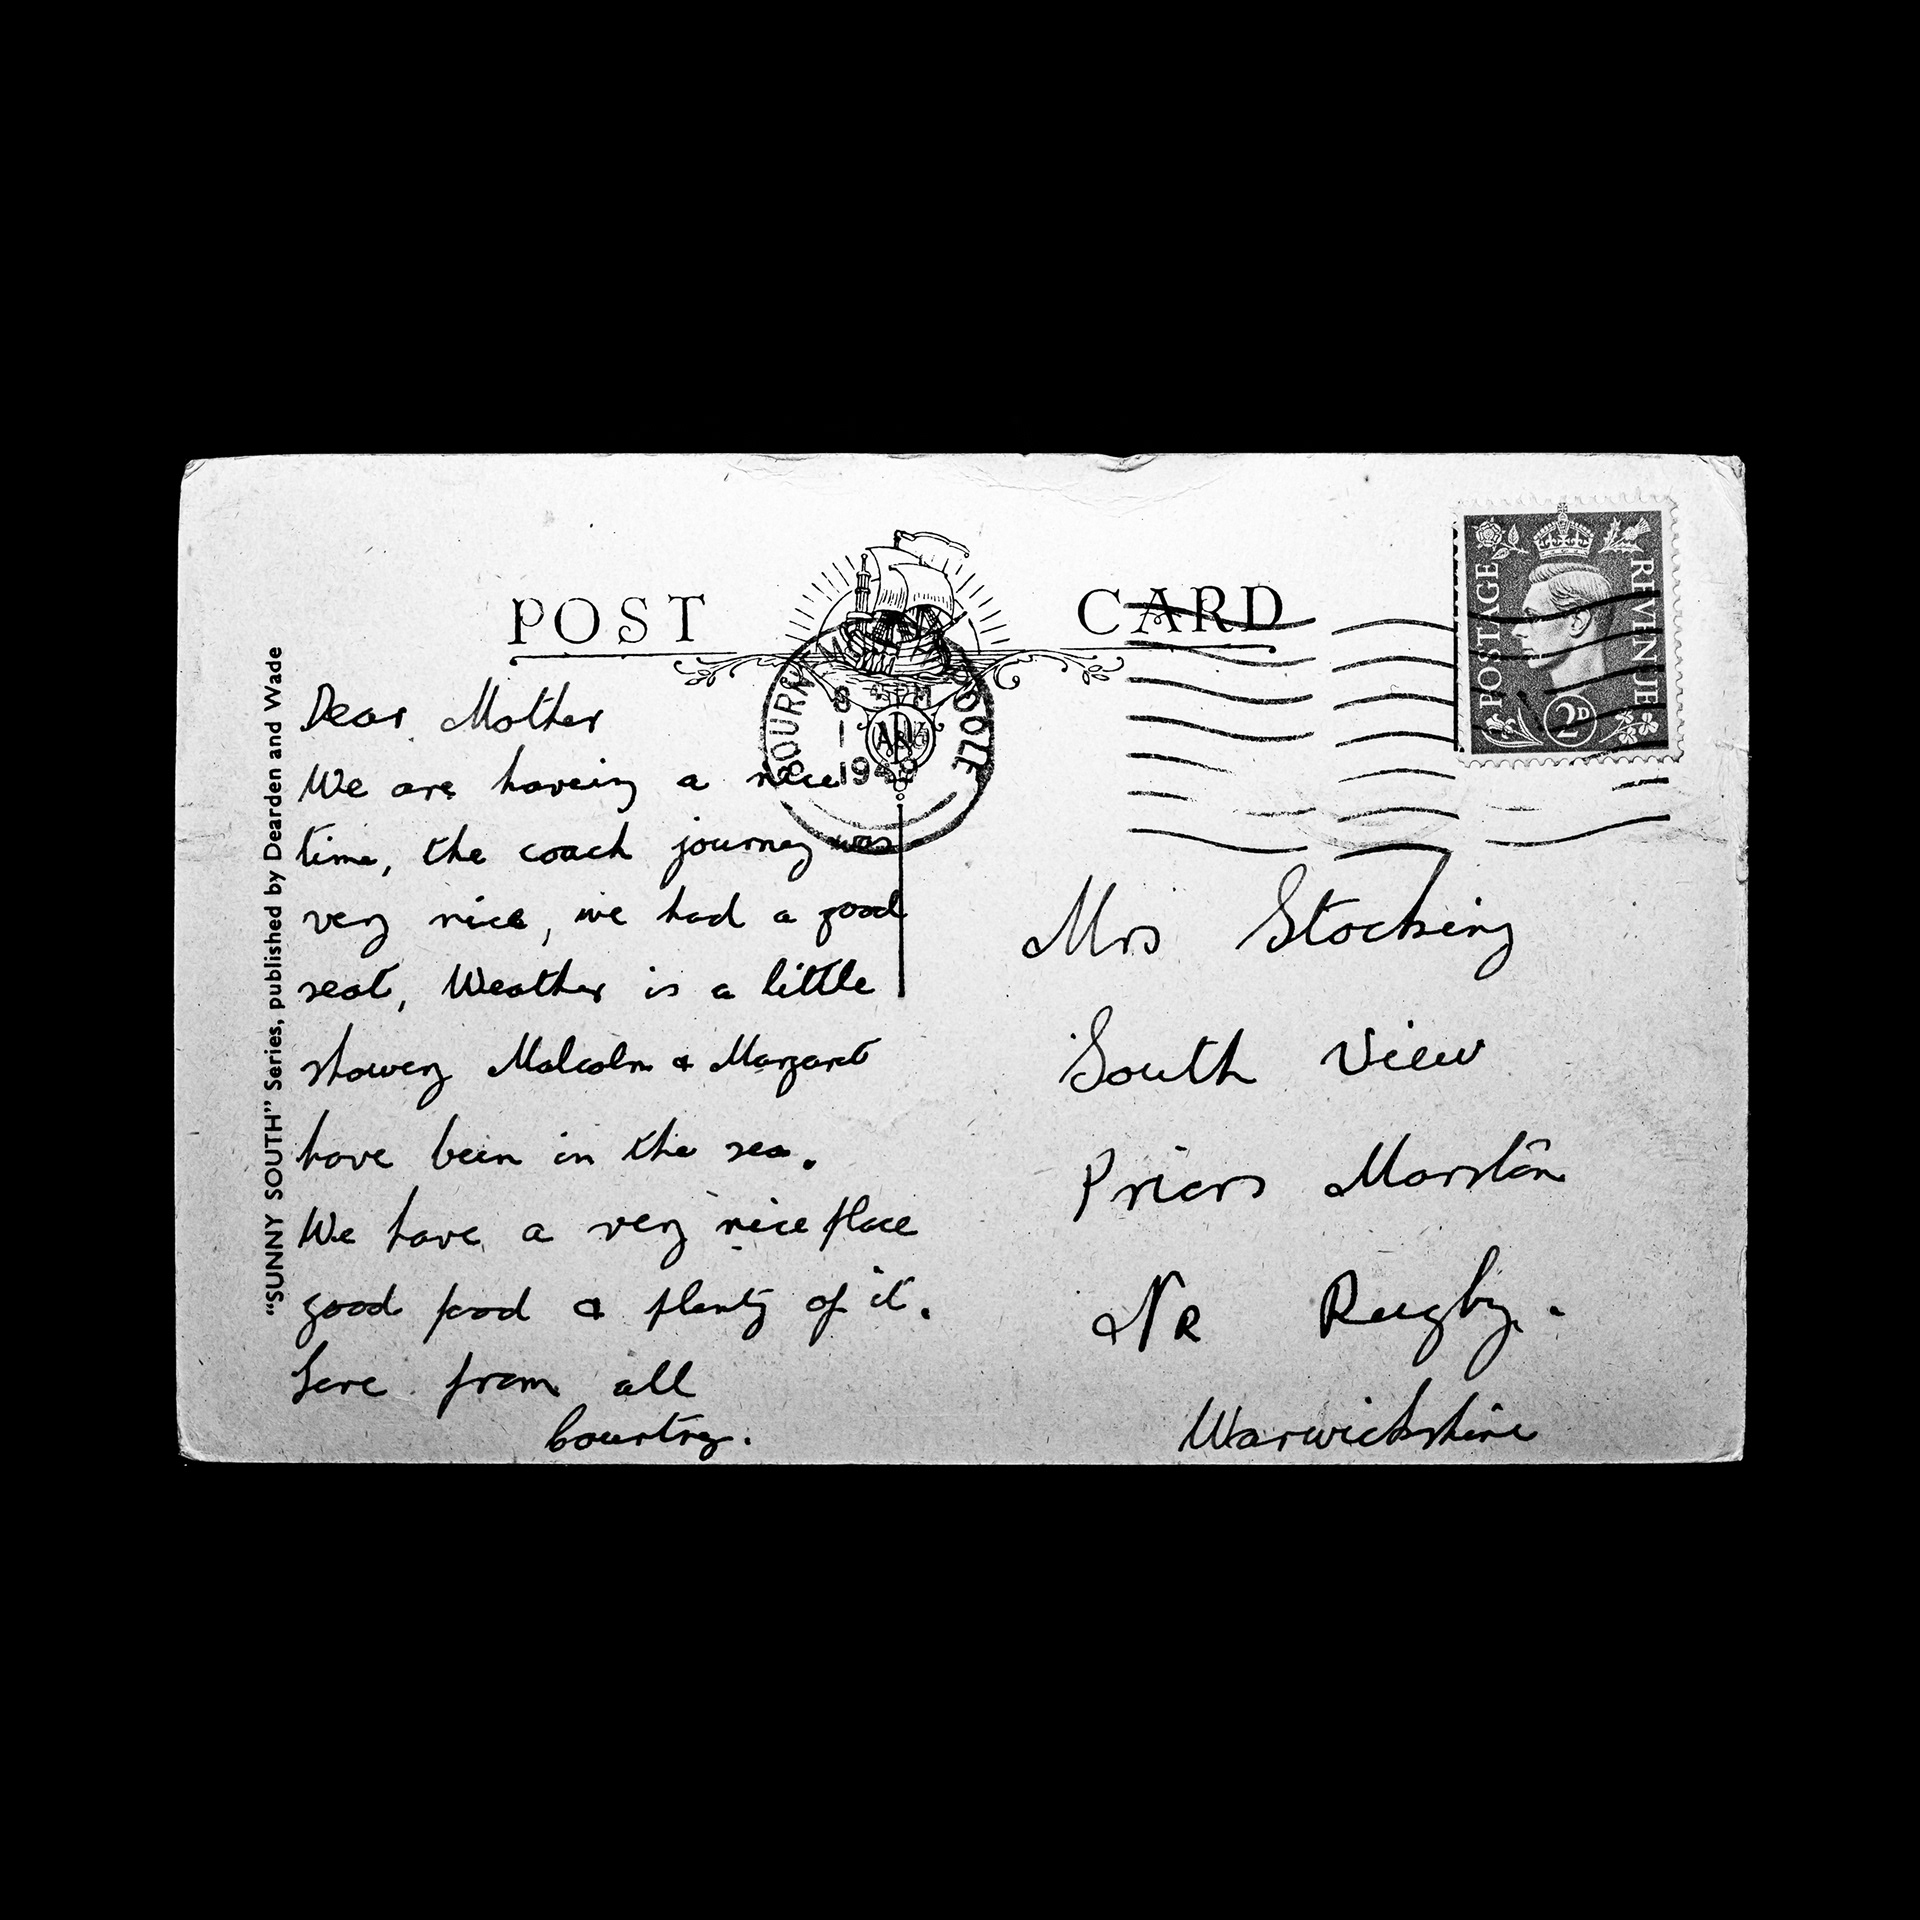 POST CARD
POSTAGE REVENUE
2D
BOURNEMOUTH POOLE
PM
1949
"SUNNY SOUTH" Series, published by Dearden and Wade
Dear Mother
We are haveing a nice
time, the coach journey was
very nice, we had a good
seat, Weather is a little
showery Malcolm & Margaret
have been in the sea.
We have a very nice place
good food & plenty of it.
Love from all
Mrs Stocking
South View
Priors Marston
NR Rugby.
Warwickshire